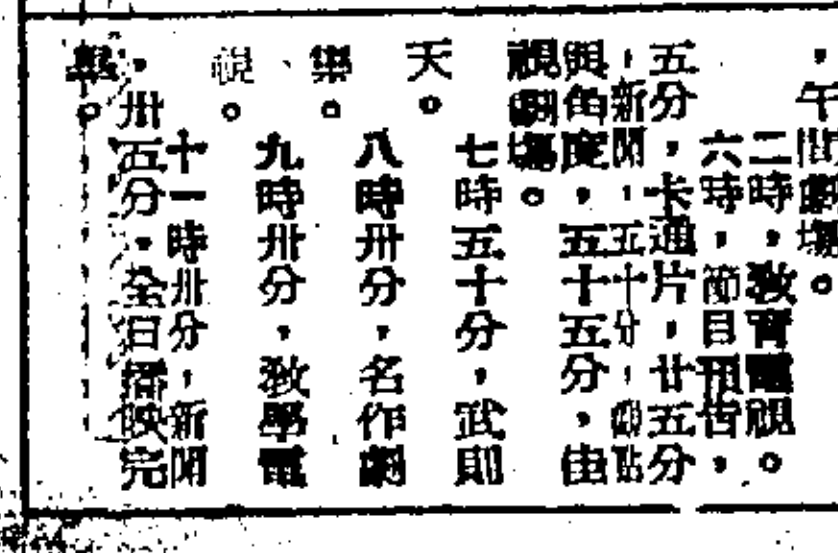 ，午間劇場。
二時，教育電視。
六時，節目預告，
五分，卡通片，廿五分
，新聞，五十分，觀點
與角度，五十五分，
視劇場。
七時五十分，武則
天。
八時卅分，名作劇
集。
九時卅分，教學電
視。
十一時卅分，新聞
，卅五分，全日播映完
畢。